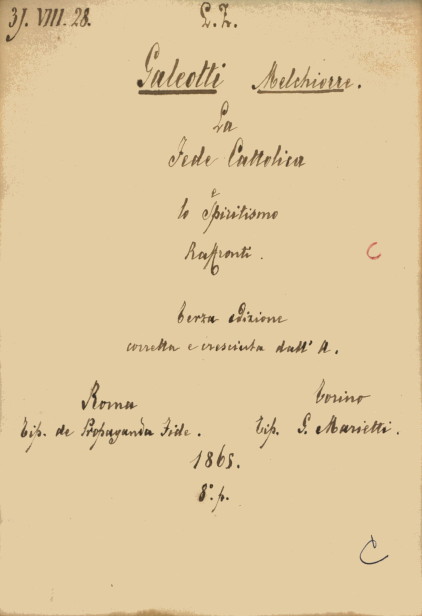 31. VIII. 28.
L. Z.
Galeotti Melchiorre.
La
Fede Cattolica
e
lo Spiritismo
Raffronti.
C
terza edizione
corretta e cresciuta dall' A.
Roma Torino
Tip. de Propaganda Fide. Tip. G. Marietti.
1865.
8° p.
C